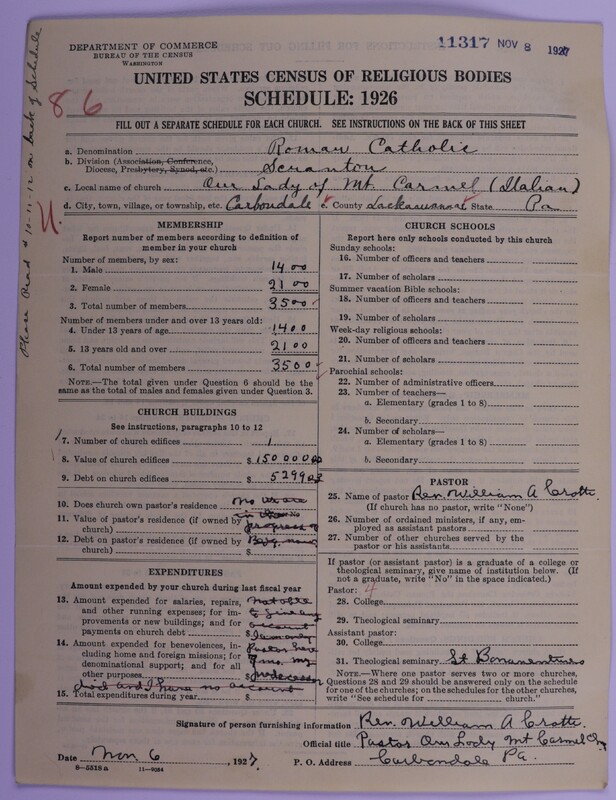 DEPARTMENT OF COMMERCE
BUREAU OF THE CENSUS
WASHINGTON
11317 NOV 8 1927
UNITED STATES CENSUS OF RELIGIOUS BODIES
SCHEDULE: 1926
86
FILL OUT A SEPARATE SCHEDULE FOR EACH CHURCH. SEE INSTRUCTIONS ON THE BACK OF THIS SHEET
Please Read # 10-11-12 on back of Schedule
a. Denomination Roman Catholic
b. Division (Association, Conference, Diocese, Presbytery, Synod, etc.) Scranton
c. Local name of church Our Lady of Mt. Carmel (Italian)
d. City, town, village, or township, etc. Carbondale e. County Lackawanna State Pa
MEMBERSHIP
Report number of members according to definition of
member in your church
Number of members, by sex:
1. Male 1400
2. Female 2100
3. Total number of members 3500
Number of members under and over 13 years old:
4. Under 13 years of age 1400
5. 13 years old and over 2100
6. Total number of members 3500
NOTE.—The total given under Question 6 should be
same as the total of males and females given under Question 3.
CHURCH BUILDINGS
See instructions, paragraphs 10 to 12
7. Number of church edifices 1
8. Value of church edifices $150000
9. Debt on church edifices $52990
10. Does church own pastor's residence no we are
11. Value of pastor's residence (if owned by in the
church) progress of
12. Debt on pastor's residence (if owned by
church) $
EXPENDITURES
Amount expended by your church during last fiscal year
13. Amount expended for salaries, repairs, not able
and other running expenses; for im- to give any
provements or new buildings; and for account
payments on church debt $ I am only
14. Amount expended for benevolences, in- Pastor here
cluding home and foreign missions; for
denominational support; and for all
other purposes $ predecessor
died and I have no account
15. Total expenditures during year $
CHURCH SCHOOLS
Report here only schools conducted by this church
Sunday schools:
16. Number of officers and teachers
17. Number of scholars
Summer vacation Bible schools:
18. Number of officers and teachers
19. Number of scholars
Week-day religious schools:
20. Number of officers and teachers
21. Number of scholars
Parochial schools:
22. Number of administrative officers
23. Number of teachers—
a. Elementary (grades 1 to 8)
b. Secondary
24. Number of scholars—
a. Elementary (grades 1 to 8)
b. Secondary
PASTOR
25. Name of pastor Rev. William A Crotti
(If church has no pastor, write "None")
26. Number of ordained ministers, if any, em-
ployed as assistant pastors
27. Number of other churches served by the
pastor or his assistants
If pastor (or assistant pastor) is a graduate of a college or
theological seminary, give name of institution below. (If
not a graduate, write "No" in the space indicated.)
Pastor: 4
28. College
29. Theological seminary
Assistant pastor:
30. College
31. Theological seminary St Bonaventures
NOTE.—Where one pastor serves two or more churches,
Questions 28 and 29 should be answered only on the schedule
for one of the churches; on the schedules for the other churches,
write "See schedule for church."
Signature of person furnishing information Rev. William A Crotti
Official title Pastor Our Lady Mt Carmel Ch
Date Nov 6, 1927 P. O. Address Carbondale Pa.
8-5318a 11-9084